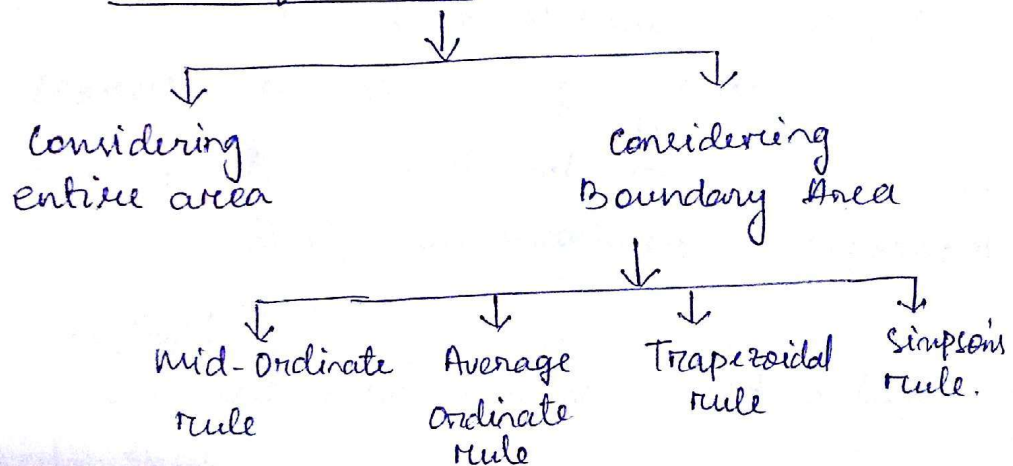 Considering
entire area
Considering
Boundary Area
Mid-Ordinate
rule
Average
Ordinate
rule
Trapezoidal
rule
Simpson's
rule.